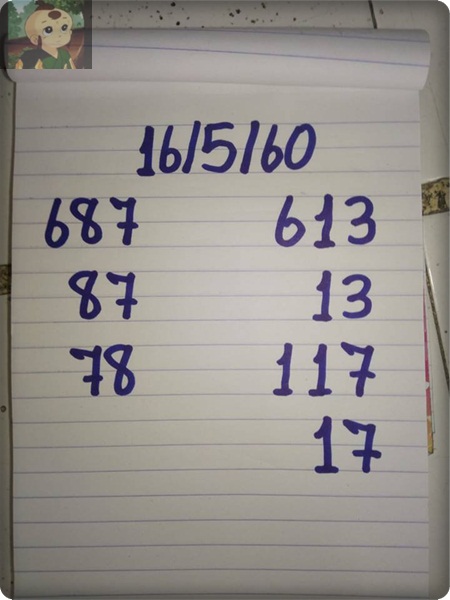 16/5/60
687 613
87 13
78 117
17